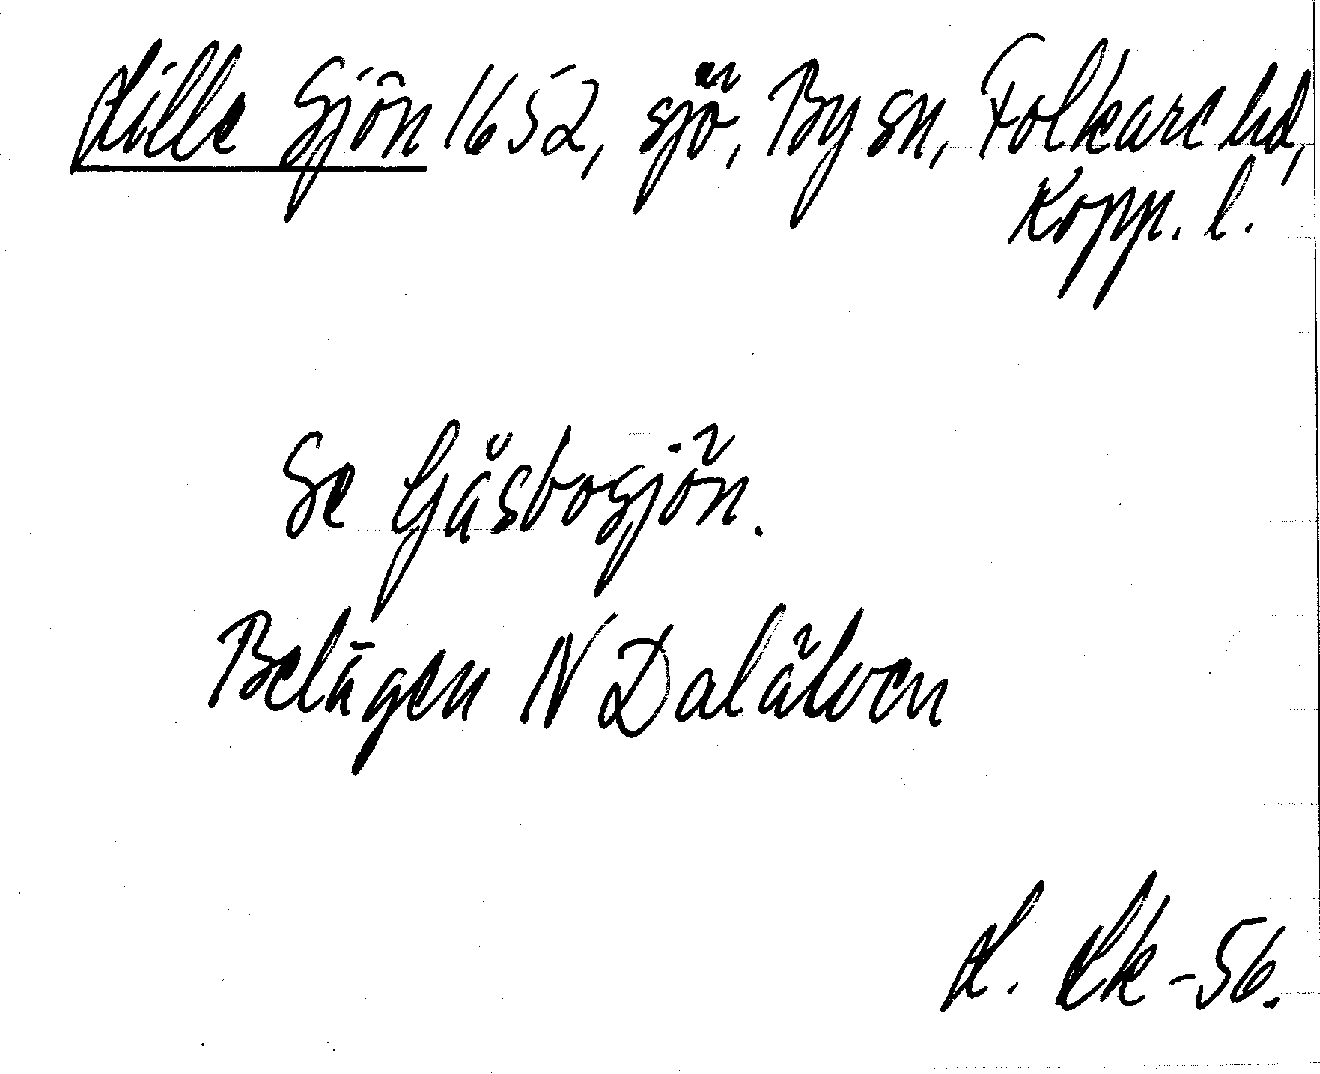 Lille Sjön 1652, sjö, By sn, Folkare hd,
Kopp. l.
Se Gåsbosjön.
Belägen N Dalälven
L. Lk -56.